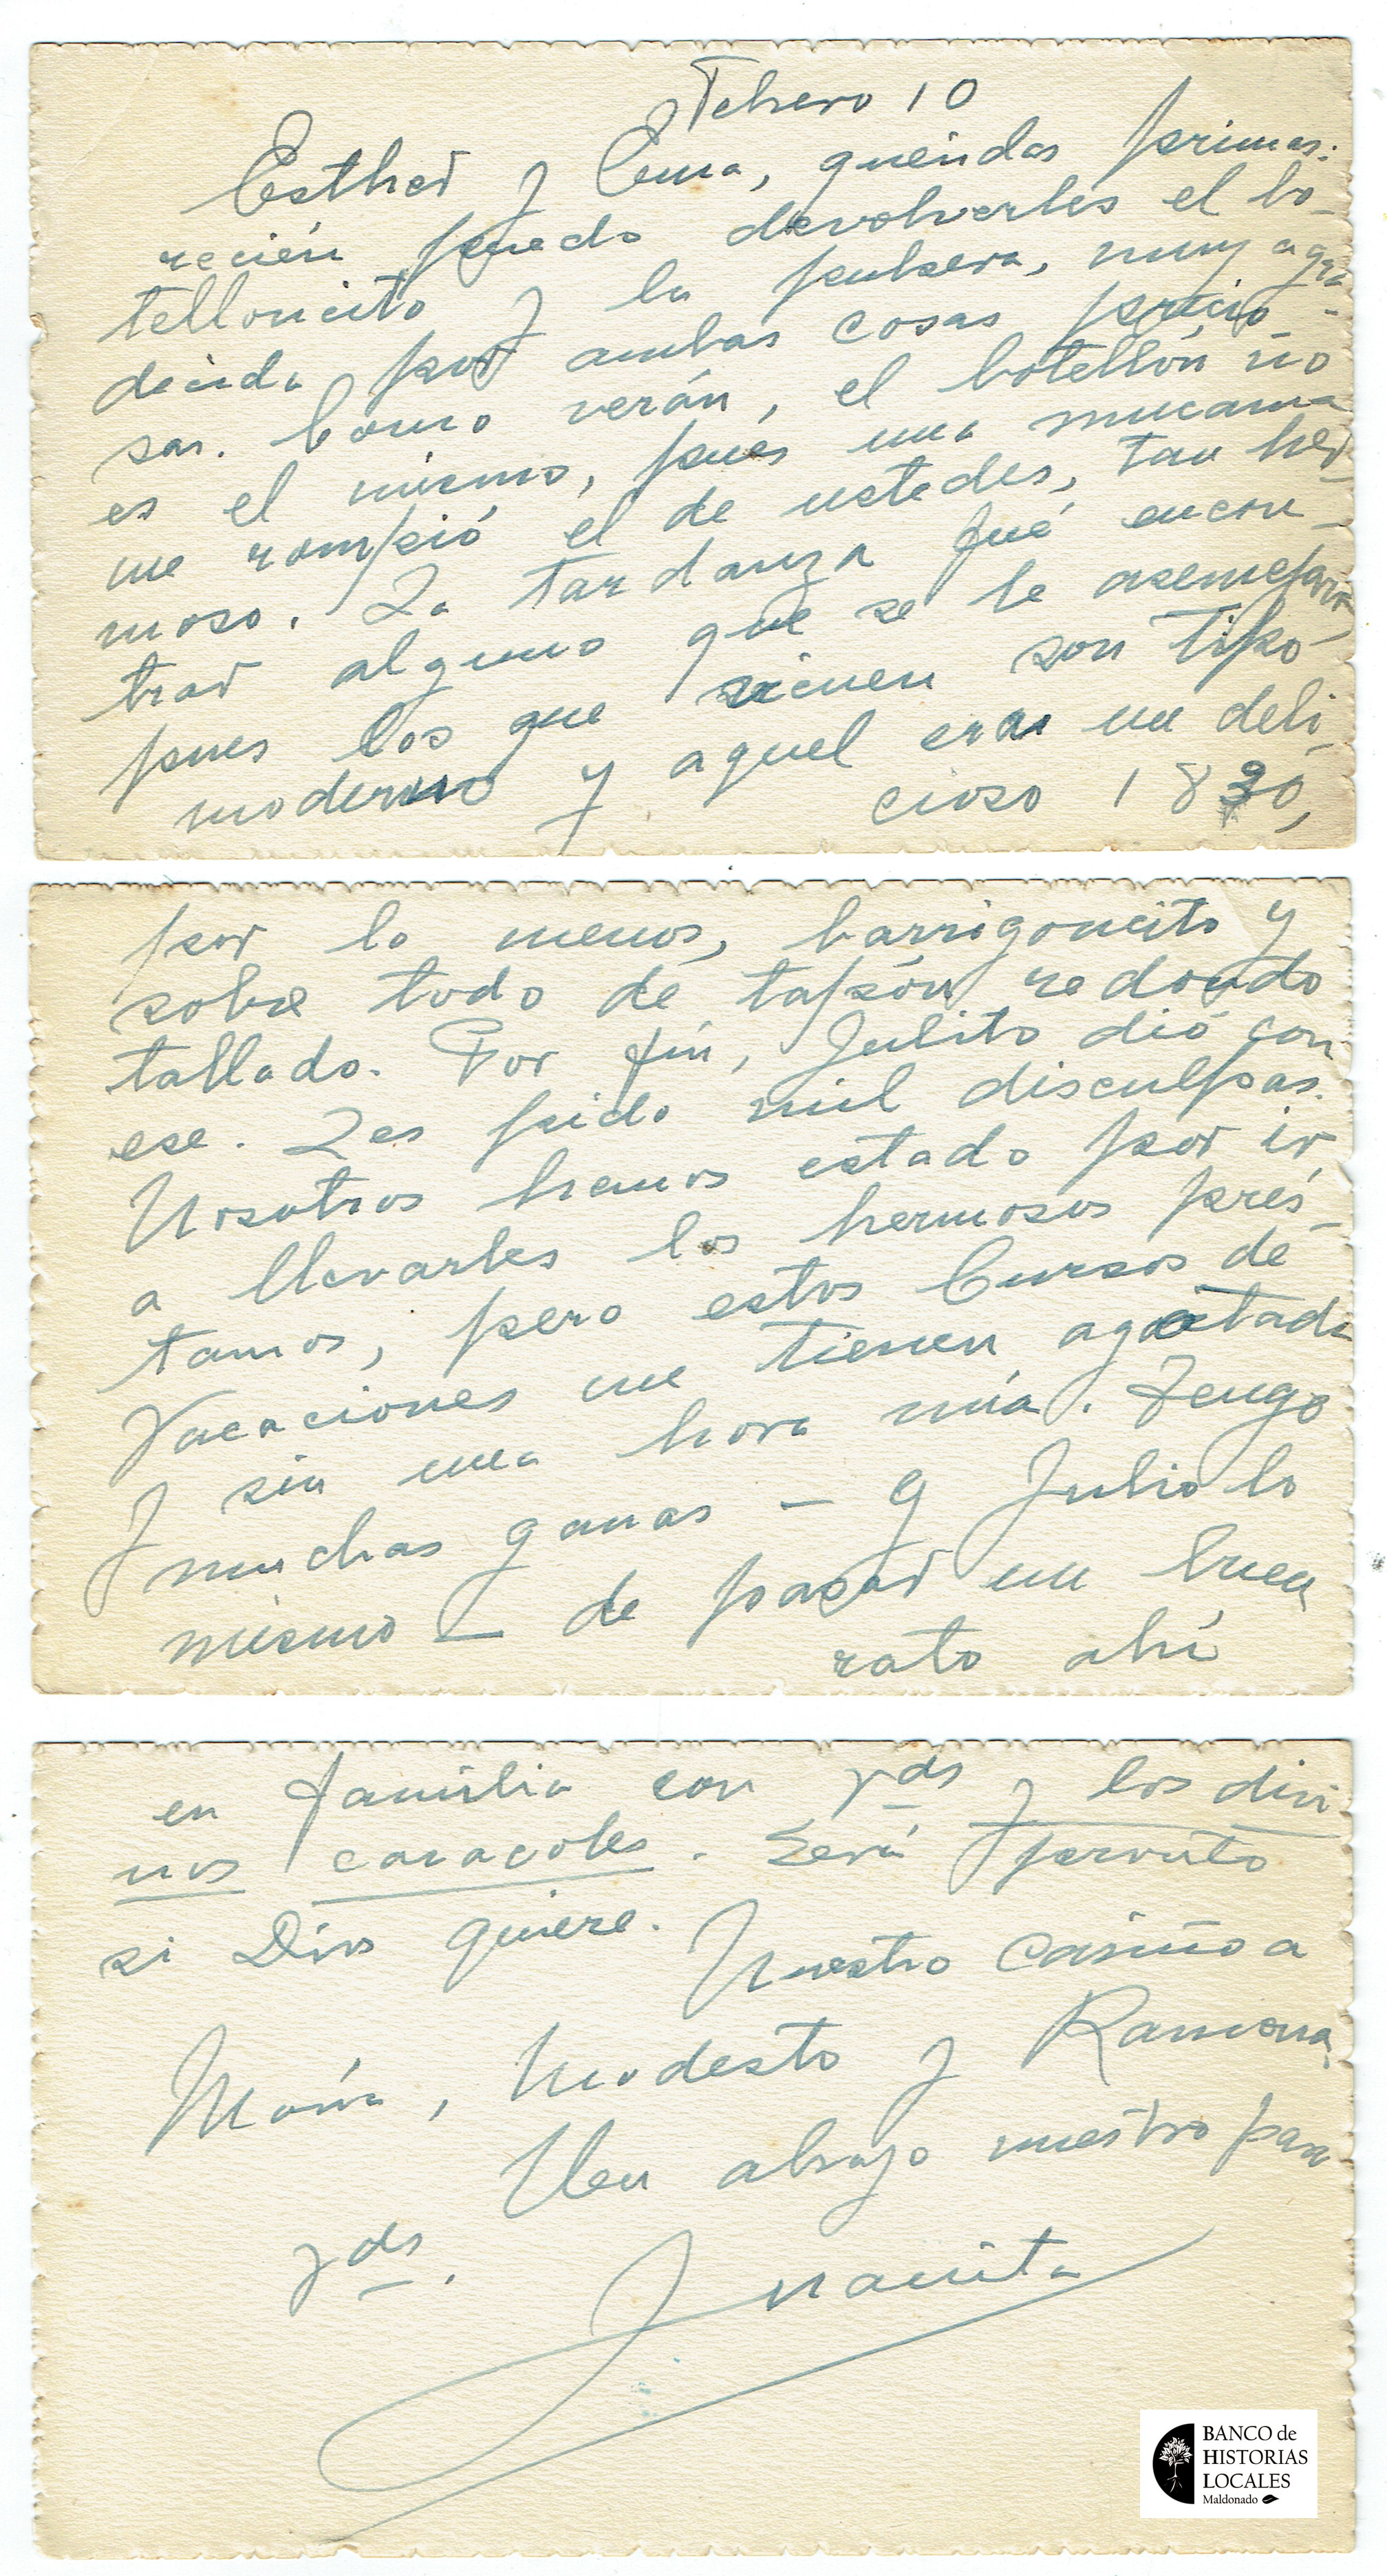 Febrero 10
Esther y Ema, queridas primas:
recién puedo devolverles el bo-
telloncito y la pulsera, muy agra-
decida por ambas cosas precio-
sas. Como verán, el botellón no
es el mismo, pués una mucama
me rompió el de ustedes, tan her-
moso. La tardanza fué encon-
trar alguno que se le asemejara,
pues los que vienen son tipo
moderno y aquel era un deli-
cioso 1830,
por lo menos, barrigoncito y
sobre todo de tapón redondo
tallado. Por fin, Julito dió con
ese. Les pido mil disculpas.
Nosotros hemos estado por ir
a llevarles los hermosos prés-
tamos, pero estos Cursos de
Vacaciones me tienen agotada
y sin una hora mía. Tengo
muchas ganas — y Julio lo
mismo — de pasar un buen
rato ahí
en familia con Vds y los divi-
nos caracoles. Será prontito
si Dios quiere.
Nuestro cariño a
María, Modesto y Ramona.
Un abrazo nuestro para
Vds.
Juanita
BANCO de
HISTORIAS
LOCALES
Maldonado